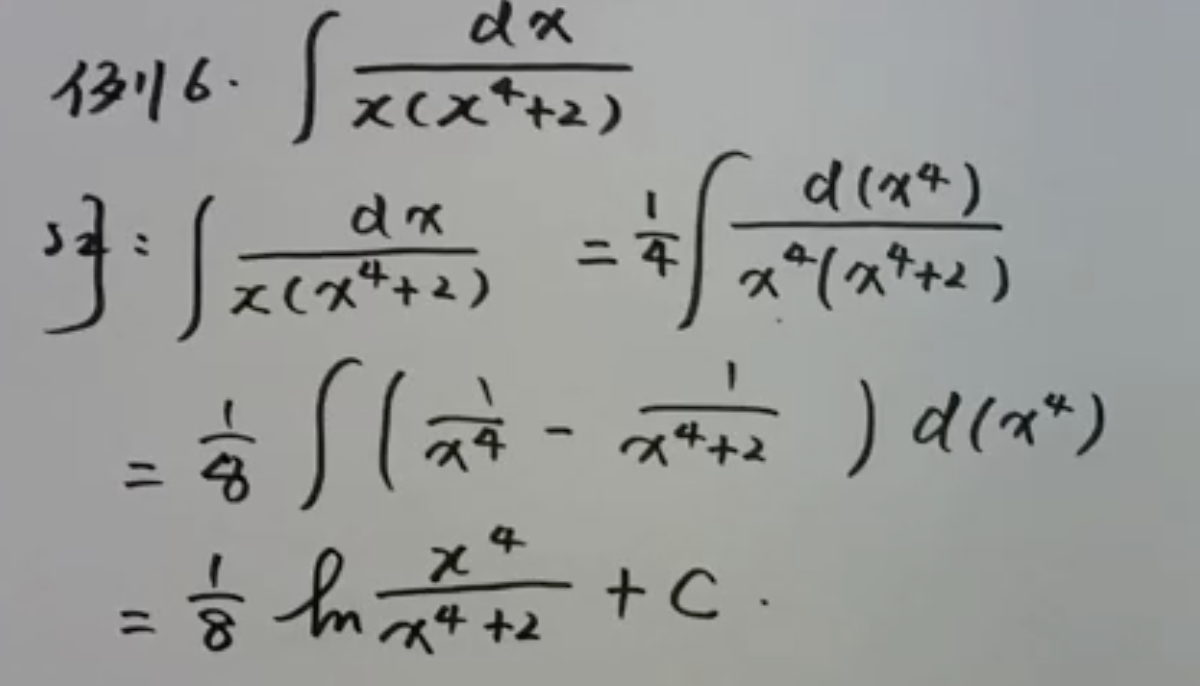 例6. ∫ dx / x(x⁴+2)
解: ∫ dx / x(x⁴+2) = 1/4 ∫ d(x⁴) / x⁴(x⁴+2)
= 1/8 ∫ ( 1/x⁴ - 1/x⁴+2 ) d(x⁴)
= 1/8 ln x⁴/x⁴+2 + C.